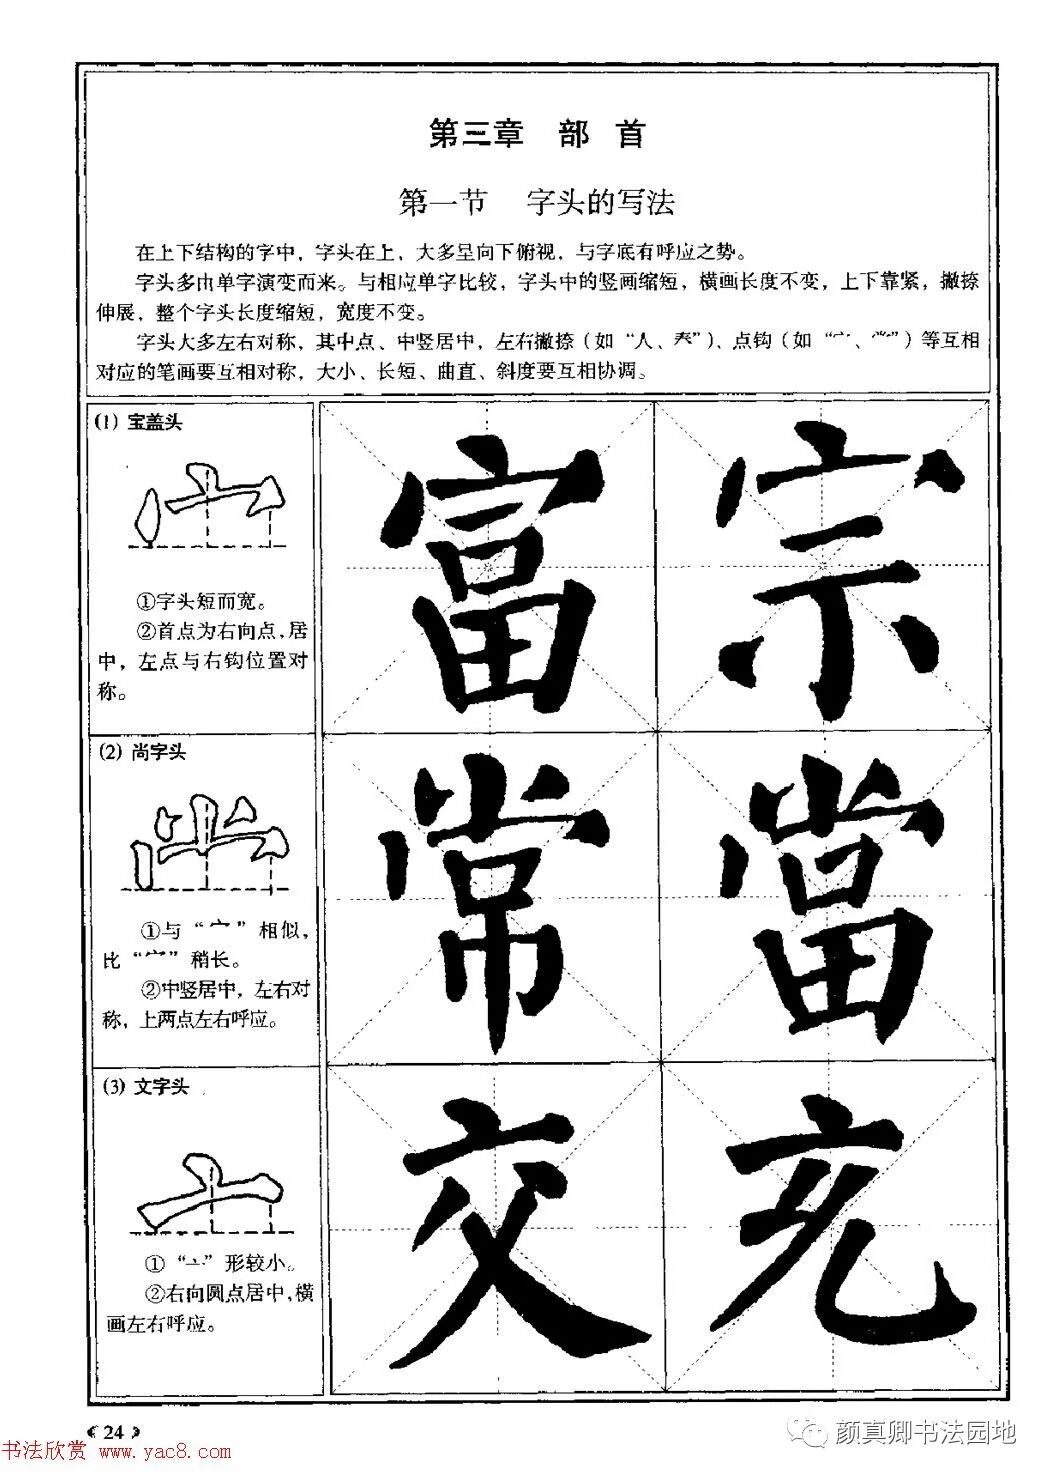 第三章 部首
第一节 字头的写法
在上下结构的字中，字头在上，大多呈向下俯视，与字底有呼应之势。
字头多由单字演变而来。与相应单字比较，字头中的竖画缩短，横画长度不变，上下靠紧，撇捺
伸展，整个字头长度缩短，宽度不变。
字头大多左右对称，其中点、中竖居中，左右撇捺（如“人、𡗗”）、点钩（如“宀、龸”）等互相
对应的笔画要互相对称，大小、长短、曲直、斜度要互相协调。
(1) 宝盖头
①字头短而宽。
②首点为右向点，居
中，左点与右钩位置对
称。
富宗
(2) 尚字头
①与“宀”相似，
比“宀”稍长。
②中竖居中，左右对
称，上两点左右呼应。
常當
(3) 文字头
①“亠”形较小。
②右向圆点居中，横
画左右呼应。
交充
《24》
书法欣赏 www.yac8.com
颜真卿书法园地